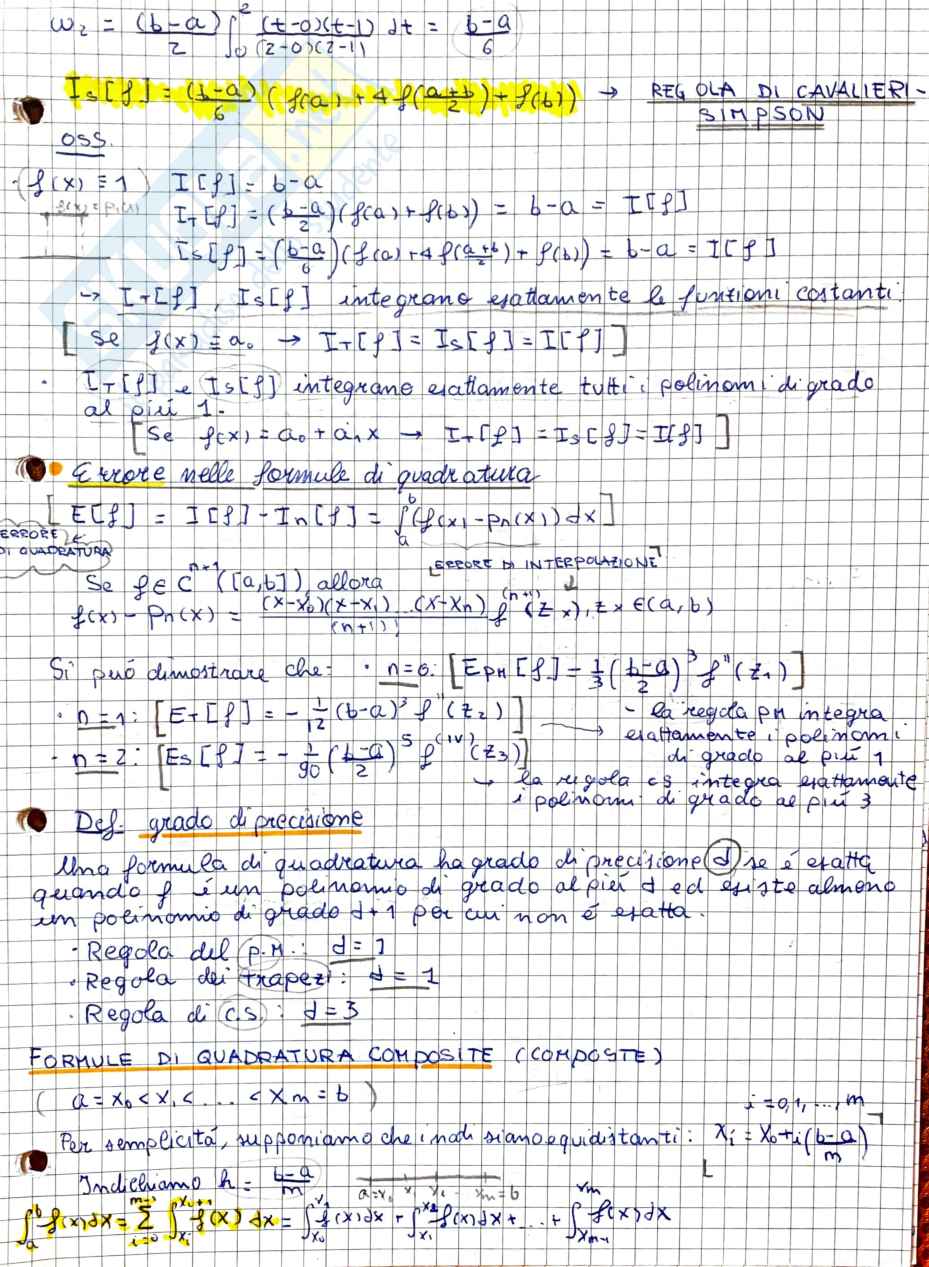 ω₂ = (b-a)/2 ∫₀² (t-0)(t-1)/(2-0)(2-1) dt = b-a/6
I_S[f] = (b-a)/6 (f(a) + 4f(a+b/2) + f(b)) → REGOLA DI CAVALIERI-
SIMPSON
OSS.
· (f(x) ≡ 1) I[f] = b-a
I_T[f] = (b-a/2)(f(a) + f(b)) = b-a = I[f]
I_S[f] = (b-a/6)(f(a) + 4f(a+b/2) + f(b)) = b-a = I[f]
→ I_T[f], I_S[f] integrano esattamente le funzioni costanti.
[Se f(x) ≡ a₀ → I_T[f] = I_S[f] = I[f]]
· I_T[f] e I_S[f] integrano esattamente tutti i polinomi di grado
al più 1.
[Se f(x) = a₀ + a₁x → I_T[f] = I_S[f] = I[f]]
• Errore nelle formule di quadratura
[E[f] = I[f] - I_n[f] = ∫ₐᵇ (f(x) - pn(x)) dx]
ERRORE
DI QUADRATURA
Se f ∈ Cⁿ⁺¹([a,b]), allora [ERRORE DI INTERPOLAZIONE]
f(x) - pn(x) = (x-x₀)(x-x₁)...(x-xn)/(n+1)! f⁽ⁿ⁺¹⁾(zx), zx ∈ (a,b)
Si può dimostrare che: · n=0: [E_PM[f] = 1/3 (b-a/2)³ f''(z₁)]
· n=1: [E_T[f] = -1/12 (b-a)³ f''(z₂)] - la regola PM integra
→ esattamente i polinomi
di grado al più 1
· n=2: [E_S[f] = -1/90 (b-a/2)⁵ f⁽ᴵⱽ⁾(z₃)]
→ la regola CS integra esattamente
i polinomi di grado al più 3
Def. grado di precisione
Una formula di quadratura ha grado di precisione d se é esatta
quando f é un polinomio di grado al più d ed esiste almeno
un polinomio di grado d+1 per cui non é esatta.
· Regola del p.M.: d=1
· Regola dei trapezi: d=1
· Regola di C.S.: d=3
FORMULE DI QUADRATURA COMPOSITE (COMPOSTE)
(a = x₀ < x₁ < ... < xm = b)
i = 0,1,...,m
Per semplicitá, supponiamo che i nodi siano equidistanti: xi = x₀ + i(b-a/m)
Indichiamo h = b-a/m a=x₀ x₁ x₂ ... xm=b
∫ₐᵇ f(x)dx = Σ_{i=0}^{m-1} ∫_{xi}^{xi+1} f(x) dx = ∫_{x₀}^{x₁} f(x)dx + ∫_{x₁}^{x₂} f(x)dx + ... + ∫_{xm-1}^{xm} f(x)dx